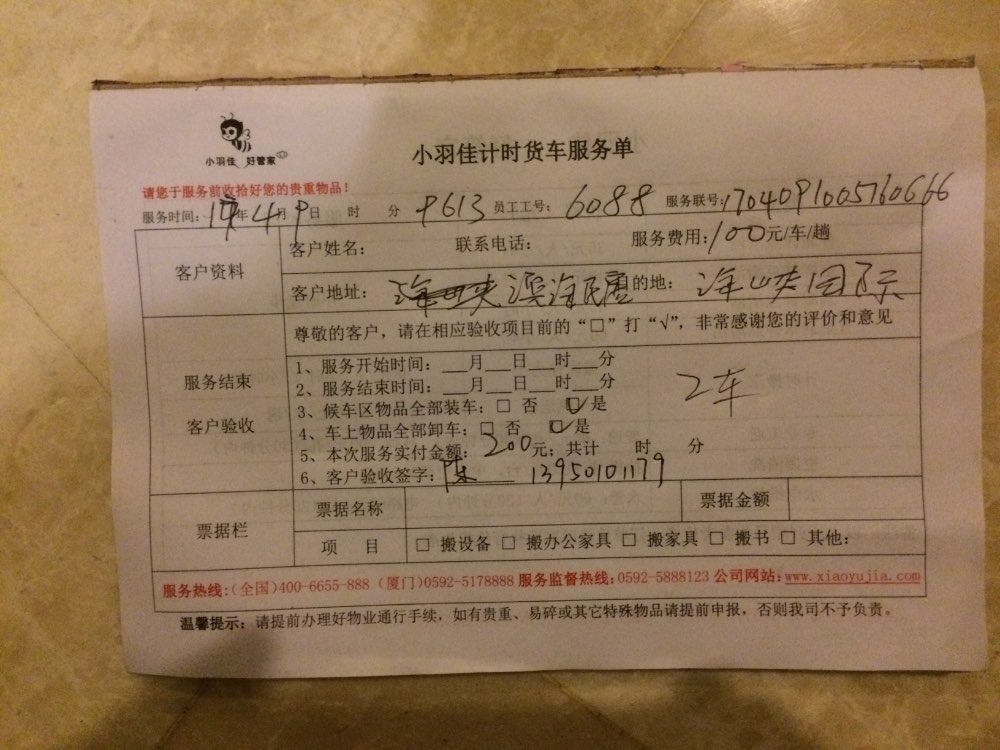 小羽佳 好管家
小羽佳计时货车服务单
请您于服务前收拾好您的贵重物品！
服务时间：17年4月9日 时 分 9613 员工工号：6088 服务联号：1704091005760666
客户资料
客户姓名： 联系电话： 服务费用：100元/车/趟
客户地址： 目的地：海峡国际
尊敬的客户，请在相应验收项目前的“□”打“√”，非常感谢您的评价和意见
服务结束
客户验收
1、服务开始时间：___月___日___时___分
2、服务结束时间：___月___日___时___分
2车
3、候车区物品全部装车：□ 否 ☑是
4、车上物品全部卸车：□ 否 ☑是
5、本次服务实付金额：200元；共计 时 分
6、客户验收签字：陈 13950101179
票据栏
票据名称 票据金额
项 目 □ 搬设备 □ 搬办公家具 □ 搬家具 □ 搬书 □ 其他：
服务热线:(全国)400-6655-888 (厦门)0592-5178888 服务监督热线:0592-5888123 公司网站:www.xiaoyujia.com
温馨提示：请提前办理好物业通行手续，如有贵重、易碎或其它特殊物品请提前申报，否则我司不予负责。